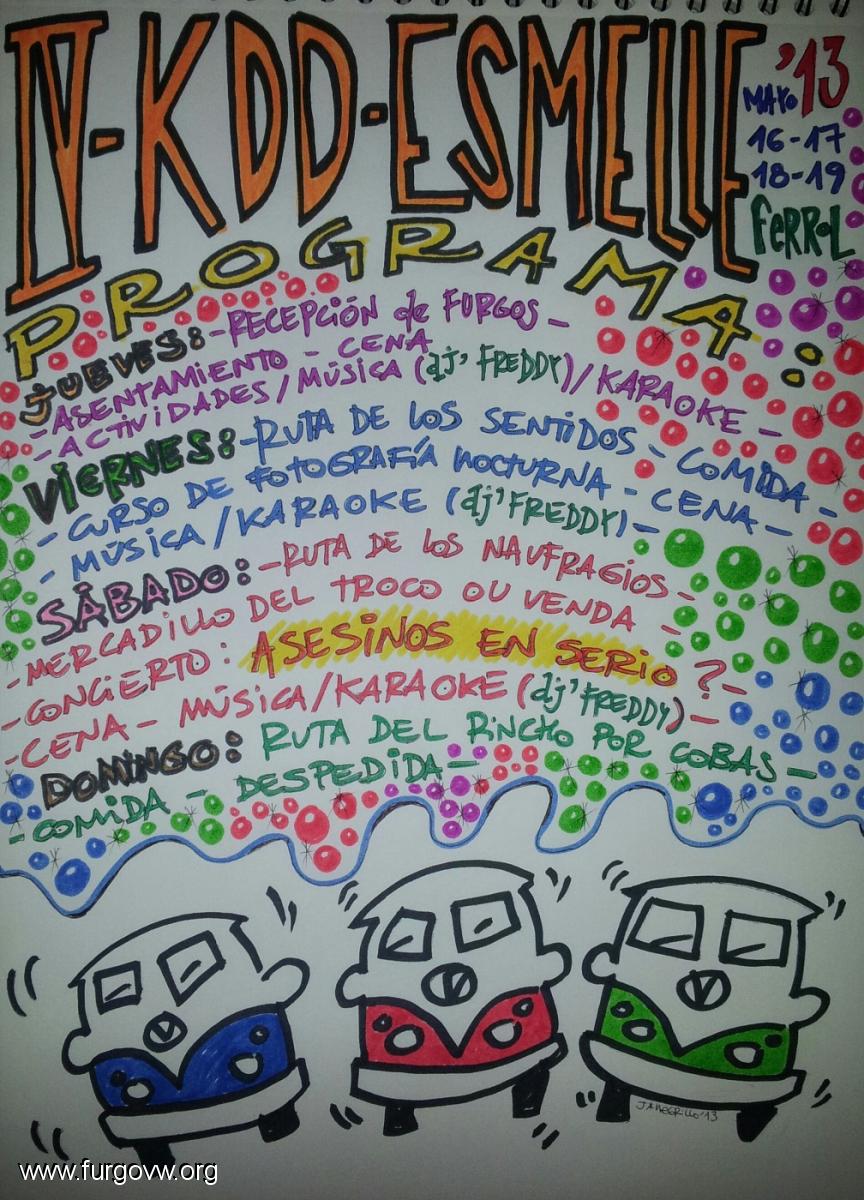 IV-KDD-ESMELLE
MAYO '13
16-17
18-19
FERROL
PROGRAMA:
JUEVES: -RECEPCIÓN de FURGOS -
-ASENTAMIENTO - CENA
-ACTIVIDADES/MÚSICA (dj' FREDDY)/KARAOKE -
VIERNES: -RUTA DE LOS SENTIDOS - COMIDA -
- CURSO DE FOTOGRAFÍA NOCTURNA - CENA -
- MÚSICA/KARAOKE (dj' FREDDY) -
SÁBADO: -RUTA DE LOS NAUFRAGIOS -
-MERCADILLO DEL TROCO OU VENDA -
-CONCIERTO: ASESINOS EN SERIO ?-
-CENA - MÚSICA/KARAOKE (dj' FREDDY) -
DOMINGO: RUTA DEL RINCHO POR COBAS -
-COMIDA - DESPEDIDA -
www.furgovw.org